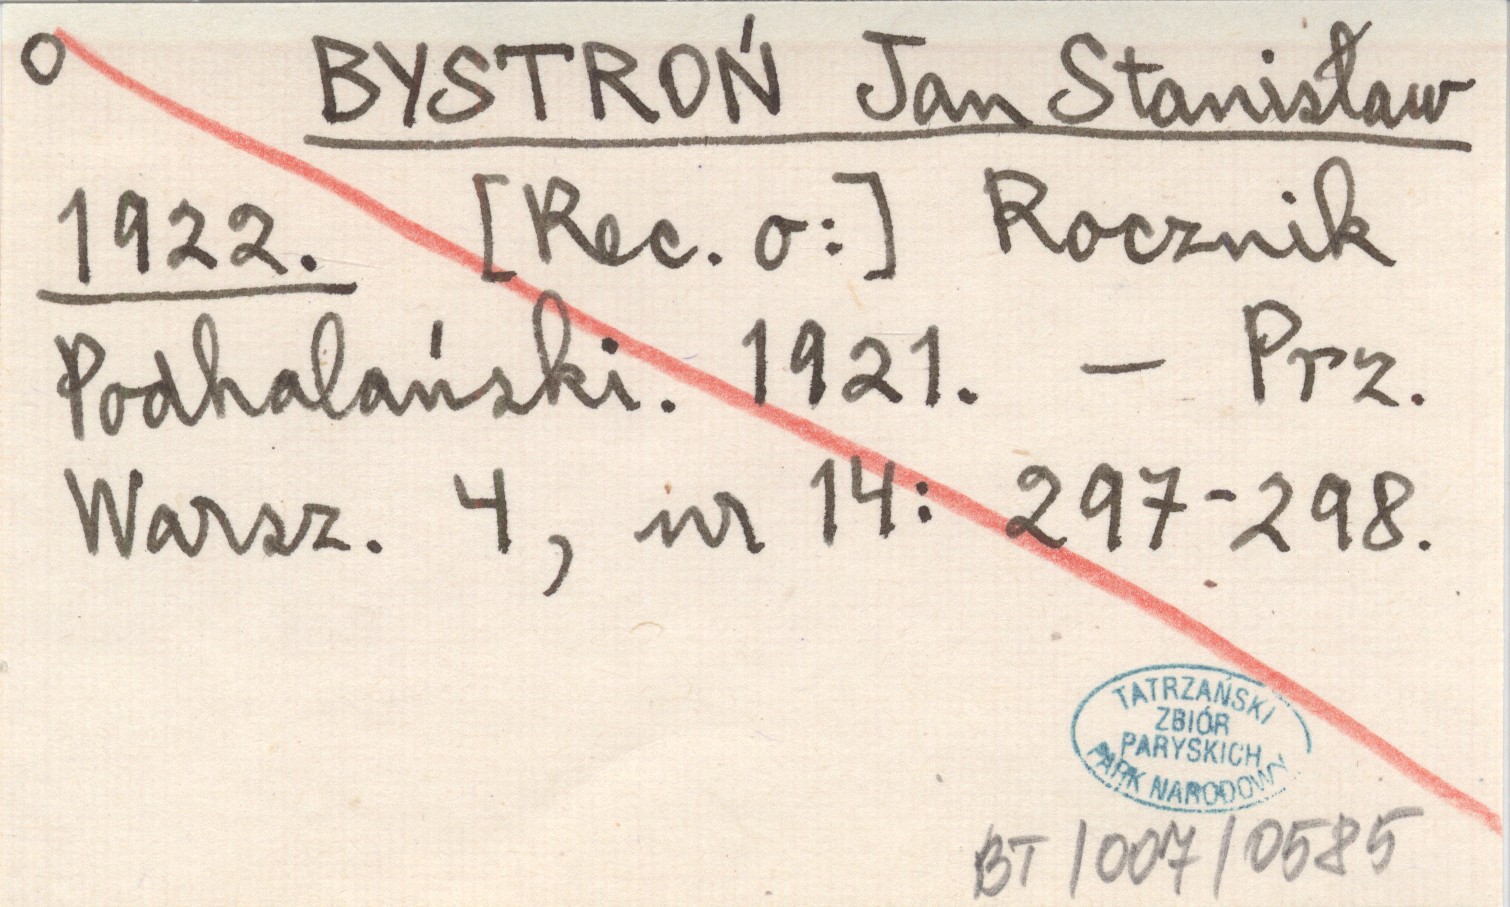 O BYSTROŃ Jan Stanisław
1922. [Rec. o:] Rocznik
Podhalański. 1921. – Prz.
Warsz. 4, nr 14: 297-298.
TATRZAŃSKI
ZBIÓR
PARYSKICH
PARK NARODOWY
BT/007/0585